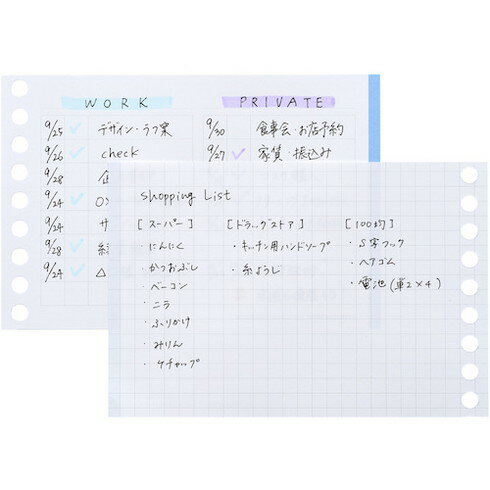 WORK
PRIVATE
9/25 デザイン・ラフ案
9/26 check
9/28
9/24
9/24
9/28
9/24
9/30 食事会・お店予約
9/27 家賃 振込み
Shopping List
[スーパー]
・にんにく
・かつおぶし
・ベーコン
・ニラ
・ふりかけ
・みりん
・ケチャップ
[ドラッグストア]
・キッチン用ハンドソープ
・糸ようじ
[100均]
・S字フック
・ヘアゴム
・電池(単2×4)